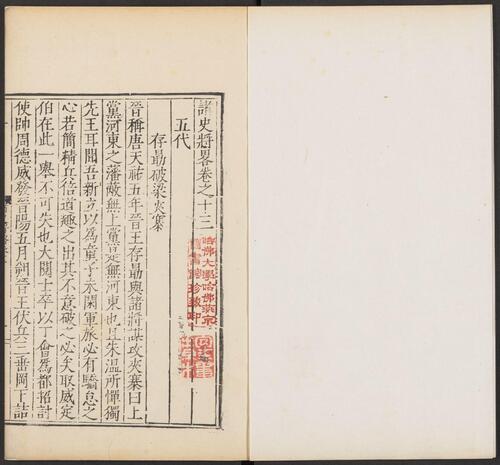 諸史將畧卷之十三
五代
存勗破梁夾寨
晉稱唐天祐五年晉王存勗與諸將謀攻夾寨曰上
黨河東之藩蔽無上黨是無河東也且朱溫所憚獨
先王耳聞吾新立以為童子未閑軍旅必有驕怠之
心若簡精兵倍道趣之出其不意破之必矣取威定
伯在此一舉不可失也大閱士卒以丁會為都招討
使帥周德威發晉陽五月朔晉王伏兵三垂岡下詰
哈佛大學哈佛燕京
圖書館珍藏印